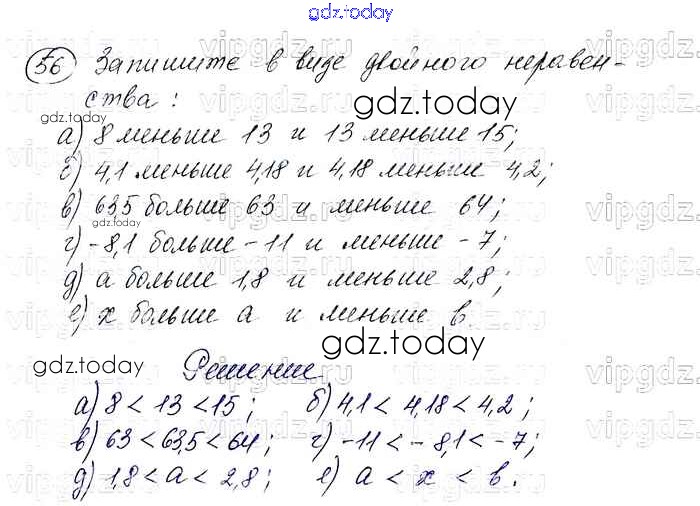 gdz.today
56 Запишите в виде двойного неравен-
ства:
gdz.today
а) 8 меньше 13 и 13 меньше 15;
б) 4,1 меньше 4,18 и 4,18 меньше 4,2;
в) 63,5 больше 63 и меньше 64;
gdz.today
г) -8,1 больше -11 и меньше -7;
д) а больше 1,8 и меньше 2,8;
е) х больше а и меньше в.
gdz.today
gdz.today
Решение
а) 8 < 13 < 15; б) 4,1 < 4,18 < 4,2;
в) 63 < 63,5 < 64; г) -11 < -8,1 < -7;
д) 1,8 < а < 2,8; е) а < х < в.
vipgdz.ru